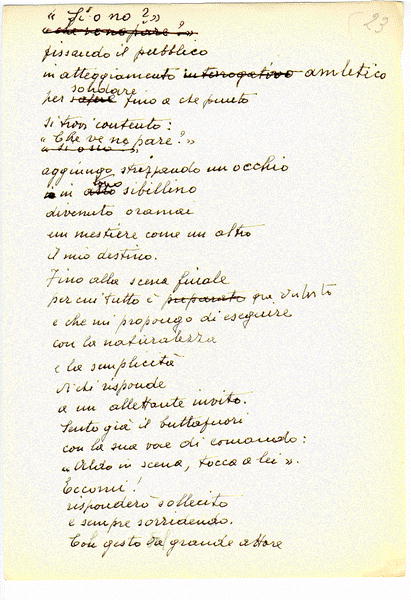 23
« Sì o no? »
« che ve ne pare? »
fissando il pubblico
in atteggiamento interrogativo amletico
solidare
per sapere fino a che punto
si trovi contento:
« Che ve ne pare? »
aggiungo strizzando un occhio
in tono sibillino
divenuto oramai
un mestiere come un altro
il mio destino.
Fino alla scena finale
per cui tutto è preparato già
e che mi propongo di eseguire
con la naturalezza
e la semplicità
di chi risponde
a un allettante invito.
Sento già il buttafuori
con la sua voce di comando:
« Aldo in scena, tocca a lei ».
Eccomi!
risponderò sollecito
e sempre sorridendo.
Con gesto da grande attore